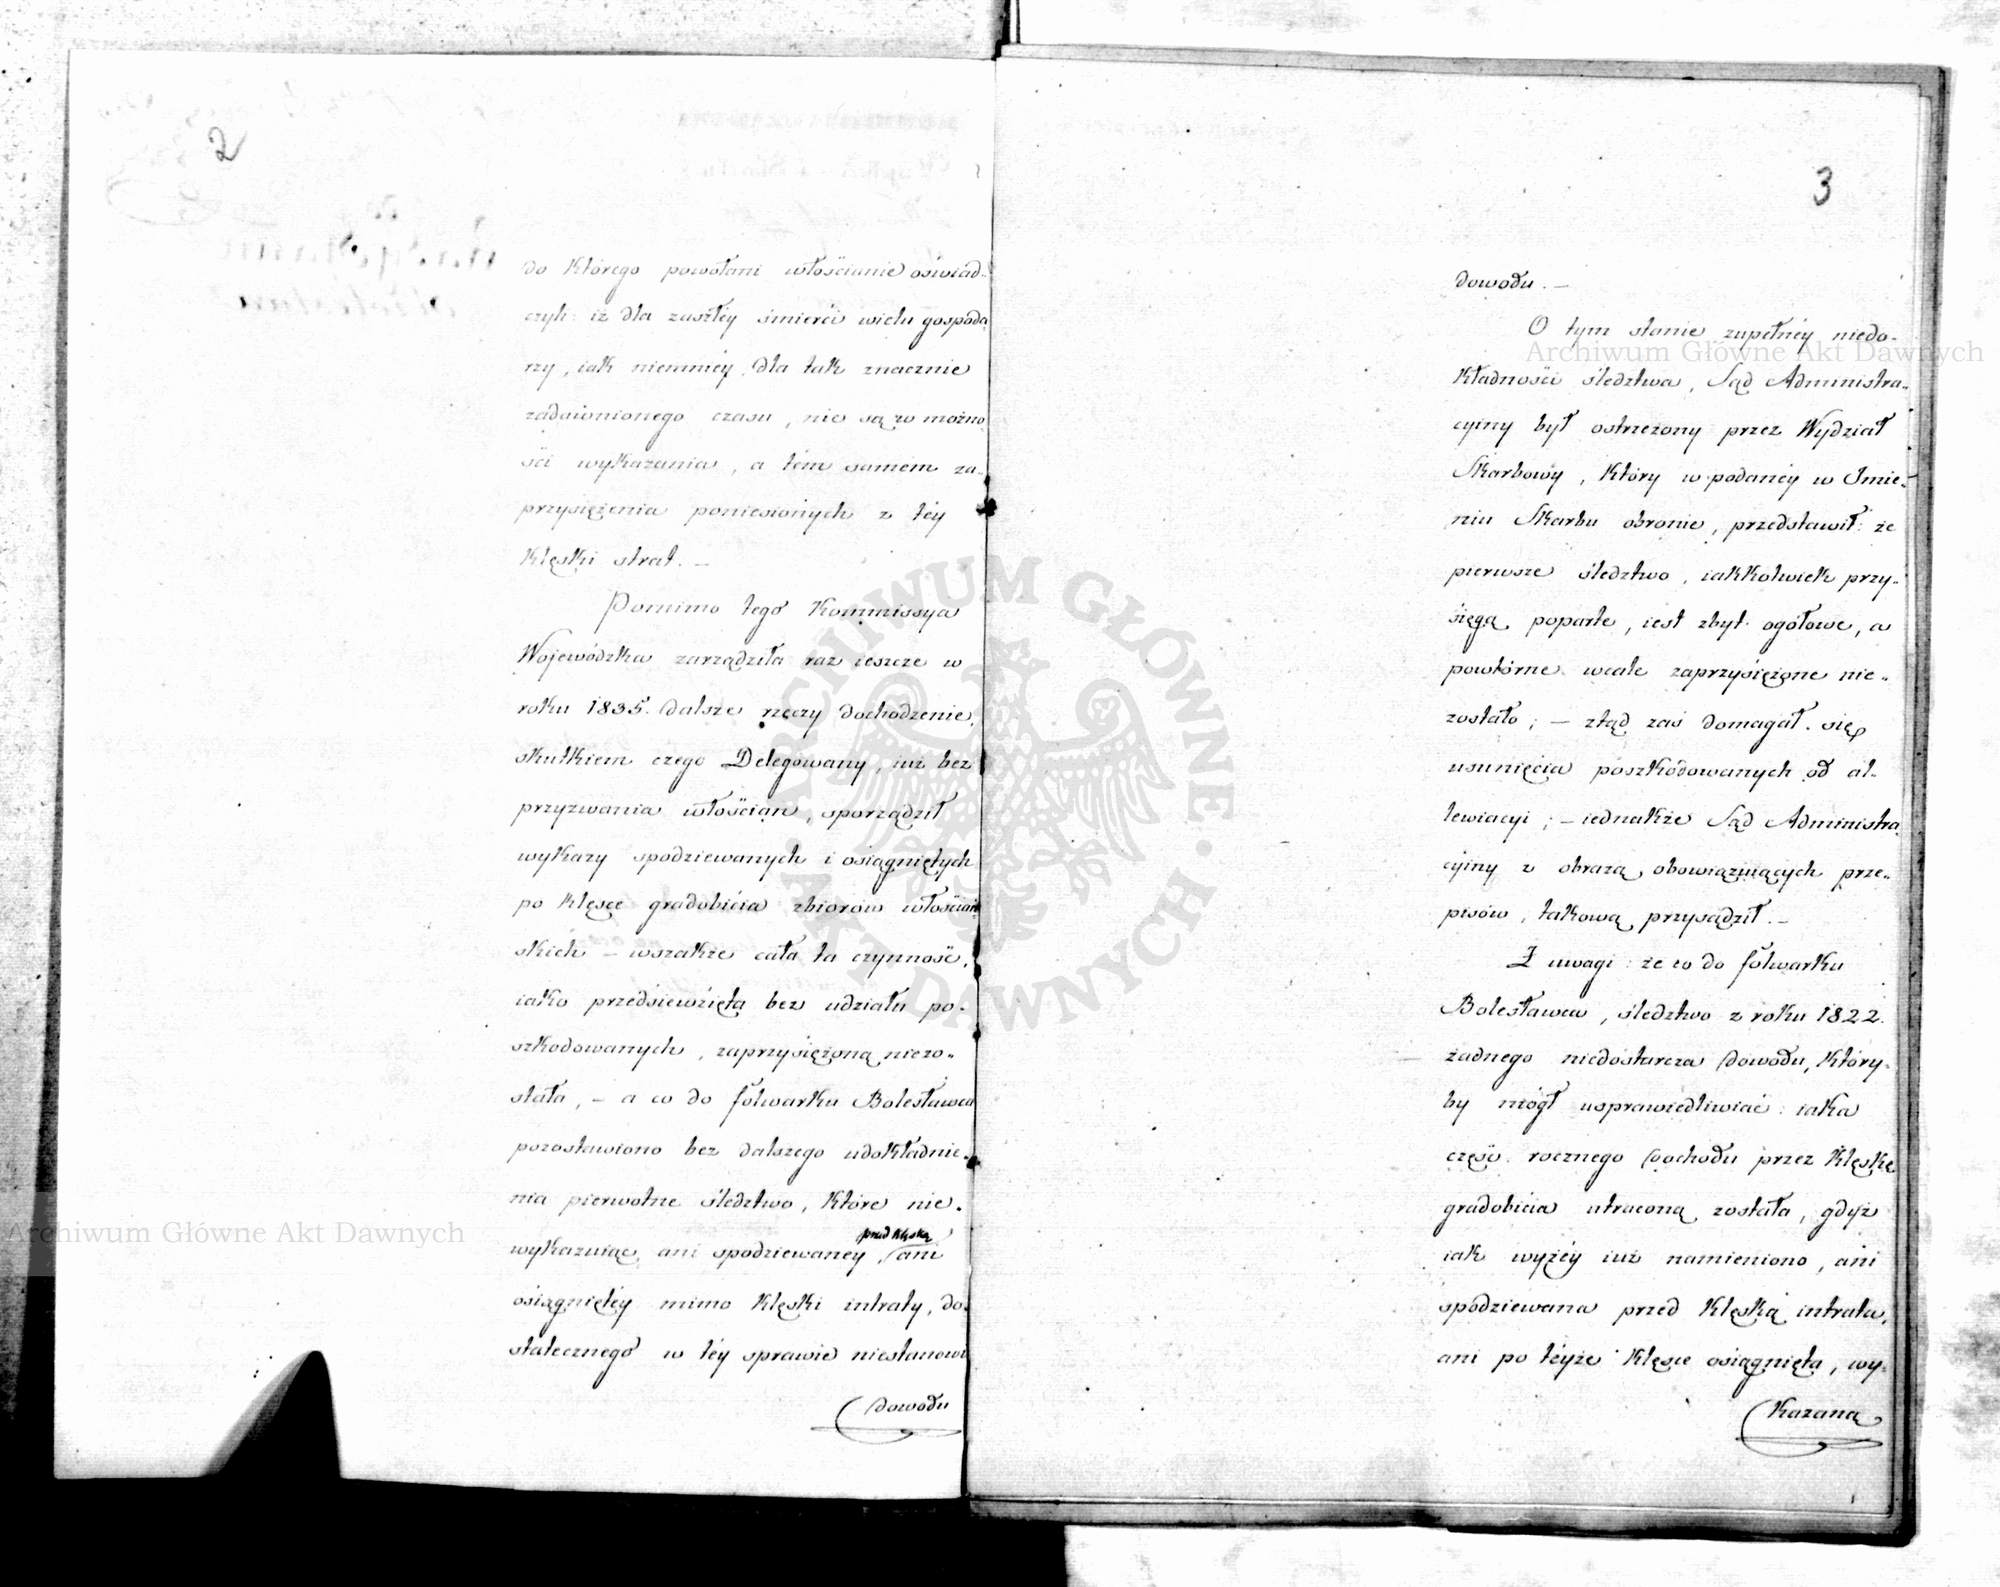 2
do którego powołani włościanie oświad-
czyli: iż dla zaszłey śmierci wielu gospoda
rzy, iak niemniéy dla tak znacznie
zadawnionego czasu, nie są w możno
ści wykazania, a tém samém za-
przysiężenia poniesionych z téy
klęski strat. —
Pomimo tego Kommissya
Wojewódzka zarządziła raz ieszcze w
roku 1835. dalsze rzeczy dochodzenie,
skutkiem czego Delegowany, iuż bez
przyzwania włościan, sporządził
wykazy spodziewanych i osiągniętych
po klęsce gradobicia zbiorów włościań
skich — wszakże cała ta czynność,
iako przedsiewzięta bez udziału po-
szkodowanych, zaprzysiężoną niezo-
stała, — a co do folwarku Bolesławca
pozostawiono bez dalszego udokładnie-
nia pierwotne śledztwo, które nie-
wykazuiąc ani spodziewaney przed klęską, ani
osiągniętéy mimo klęski intraty, do-
statecznego w téy sprawie niestanowi
dowodu
3
dowodu. —
O tym stanie zupełnéy niedo-
kładności śledztwa, Sąd Administra-
cyiny był ostrzeżony przez Wydział
Skarbowy, który w podanéy w Imie-
niu Skarbu obronie, przedstawił: że
pierwsze śledztwo, iakkolwiek przy-
sięgą poparte, iest zbyt ogółowe, a
powtórne wcale zaprzysiężone nie-
zostało; — ztąd zaś domagał się
usunięcia poszkodowanych od al-
lewiacyi; — iednakże Sąd Administra
cyiny z obrazą obowiązuiących prze-
pisów, takową przysądził. —
Z uwagi: że co do folwarku
Bolesławca, śledztwo z roku 1822.
żadnego niedostarcza dowodu, który-
by mógł usprawiedliwiać: iaka
częśc rocznego dochodu przez klęskę
gradobicia utraconą została, gdyż
iak wyżéy iuż namieniono, ani
spodziewana przed klęską intrata,
ani po téyże klęsce osiągnięta, wy-
kazaną
Archiwum Główne Akt Dawnych
Archiwum Główne Akt Dawnych
ARCHIWUM GŁÓWNE AKT DAWNYCH